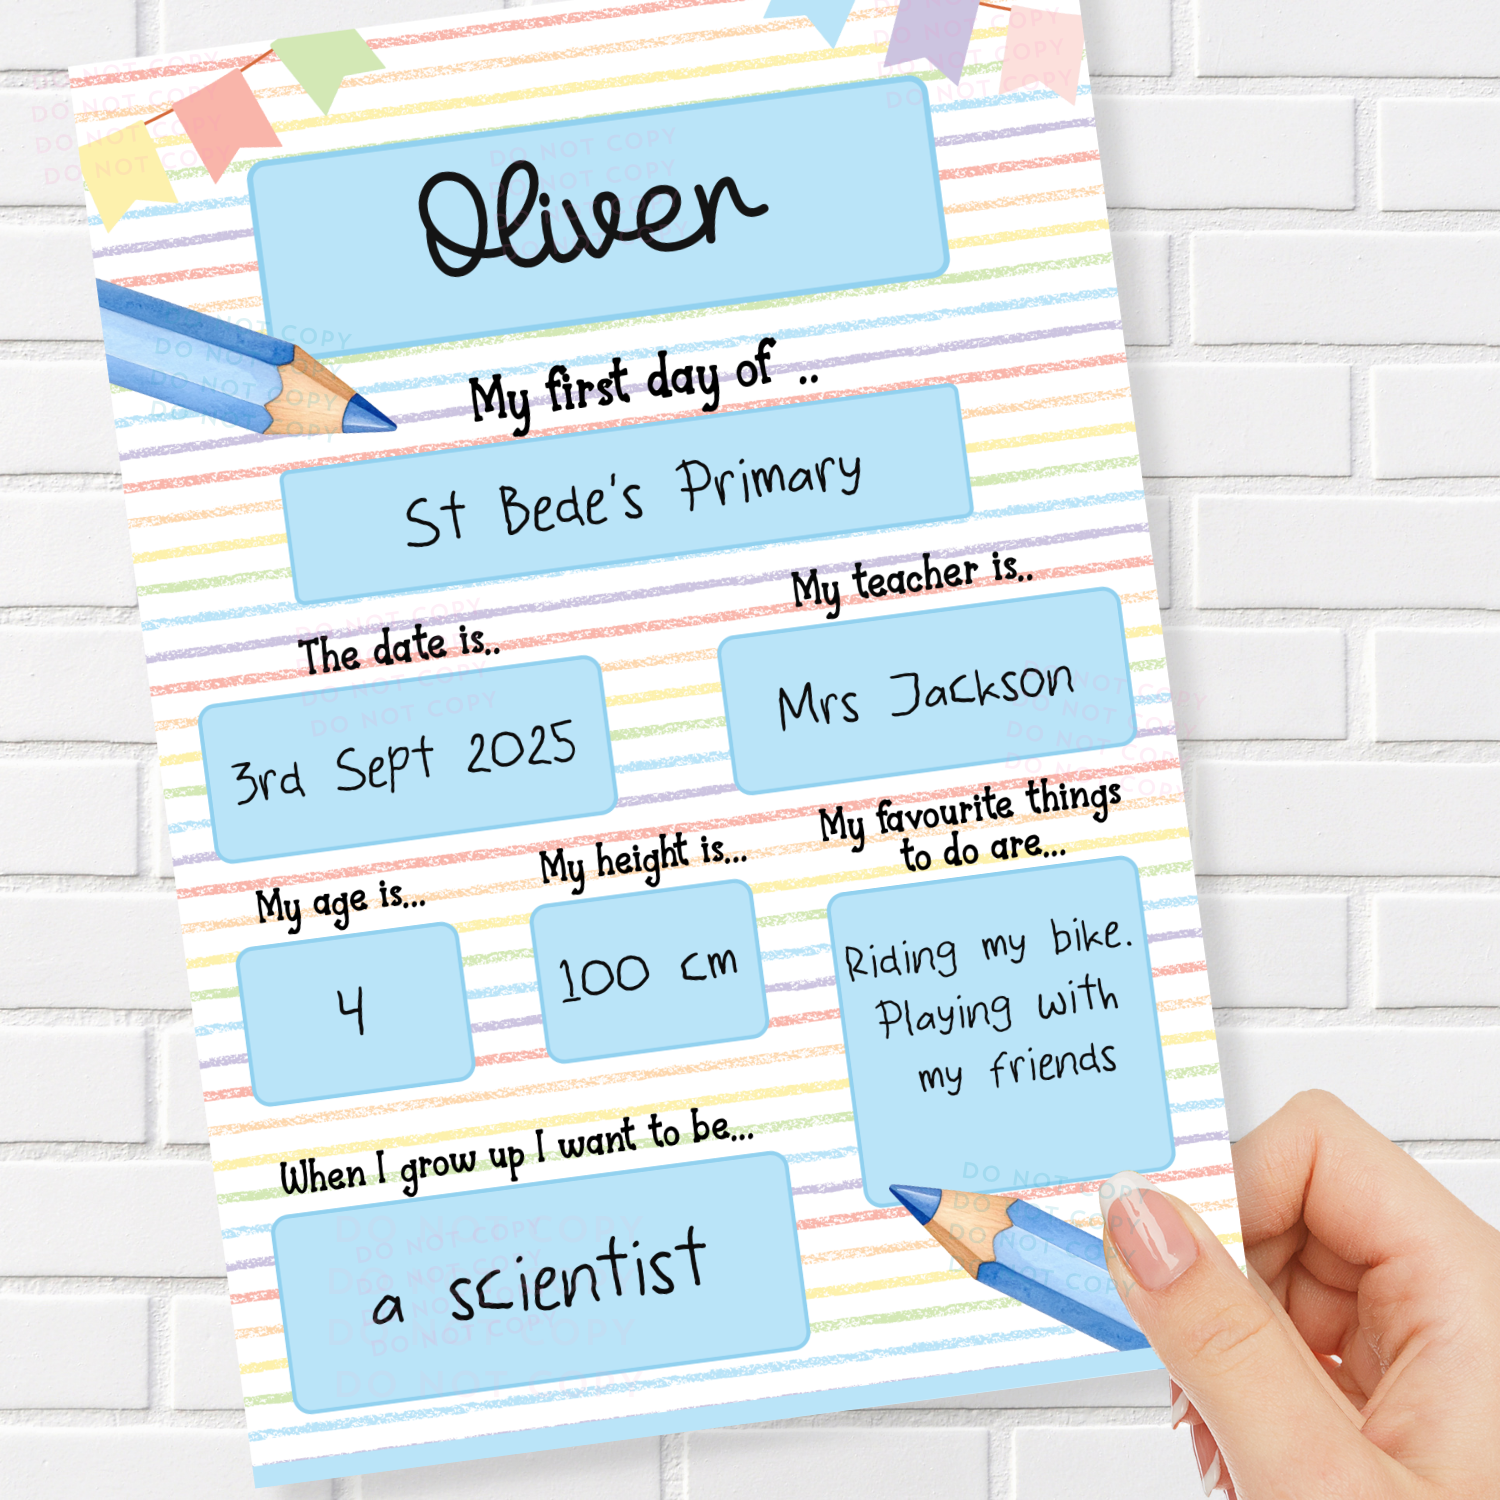 Oliver
My first day of ..
St Bede's Primary
My teacher is..
The date is..
Mrs Jackson
3rd Sept 2025
My favourite things
to do are...
My height is...
My age is...
Riding my bike.
Playing with
my friends
100 cm
4
When I grow up I want to be...
a scientist
DO NOT COPY
DO NOT COPY
DO NOT COPY
DO NOT COPY